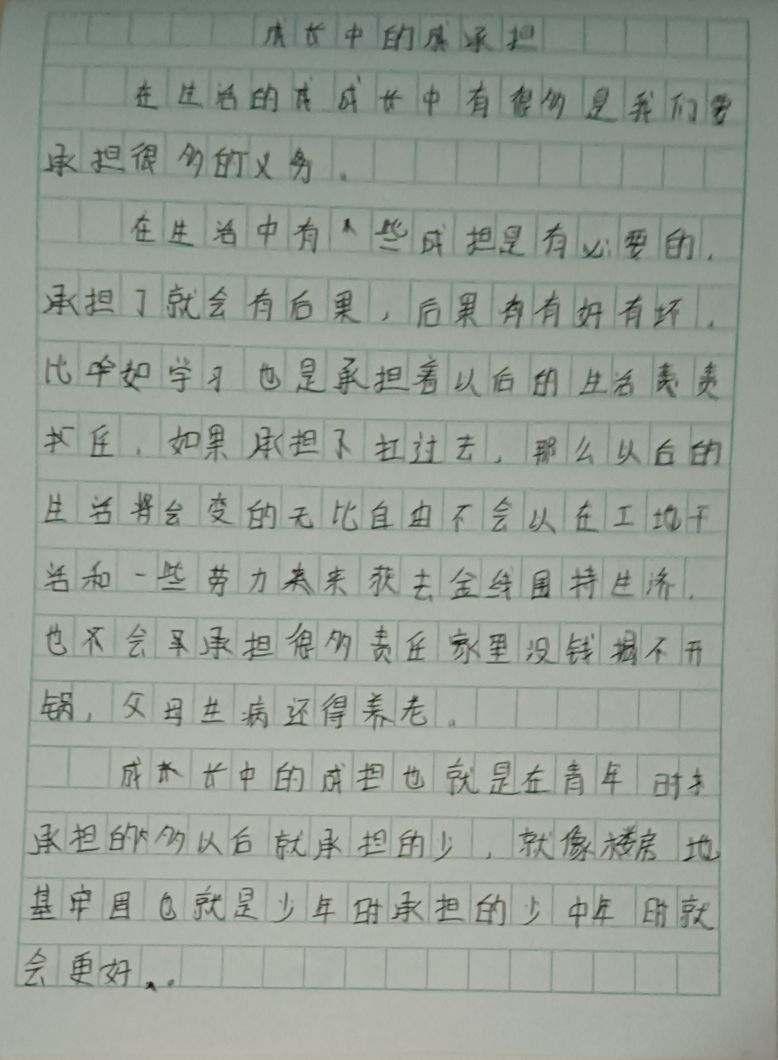 成长中的成承担
在生活的成成长中有很多是我们要
承担很多的义务。
在生活中有一些成担是有必要的，
承担了就会有后果，后果有有好有坏，
比如学习也是承担着以后的生活责责
任，如果承担下扛过去，那么以后的
生活将会变的无比自由不会以在工地干
活和一些劳力来来获去金钱围持生济，
也不会承担很多责任家里没钱揭不开
锅，父母生病还得养老。
成长中的成担也就是在青年时
承担的多以后就承担的少，就像楼房地
基牢固也就是少年时承担的少中年时就
会更好。